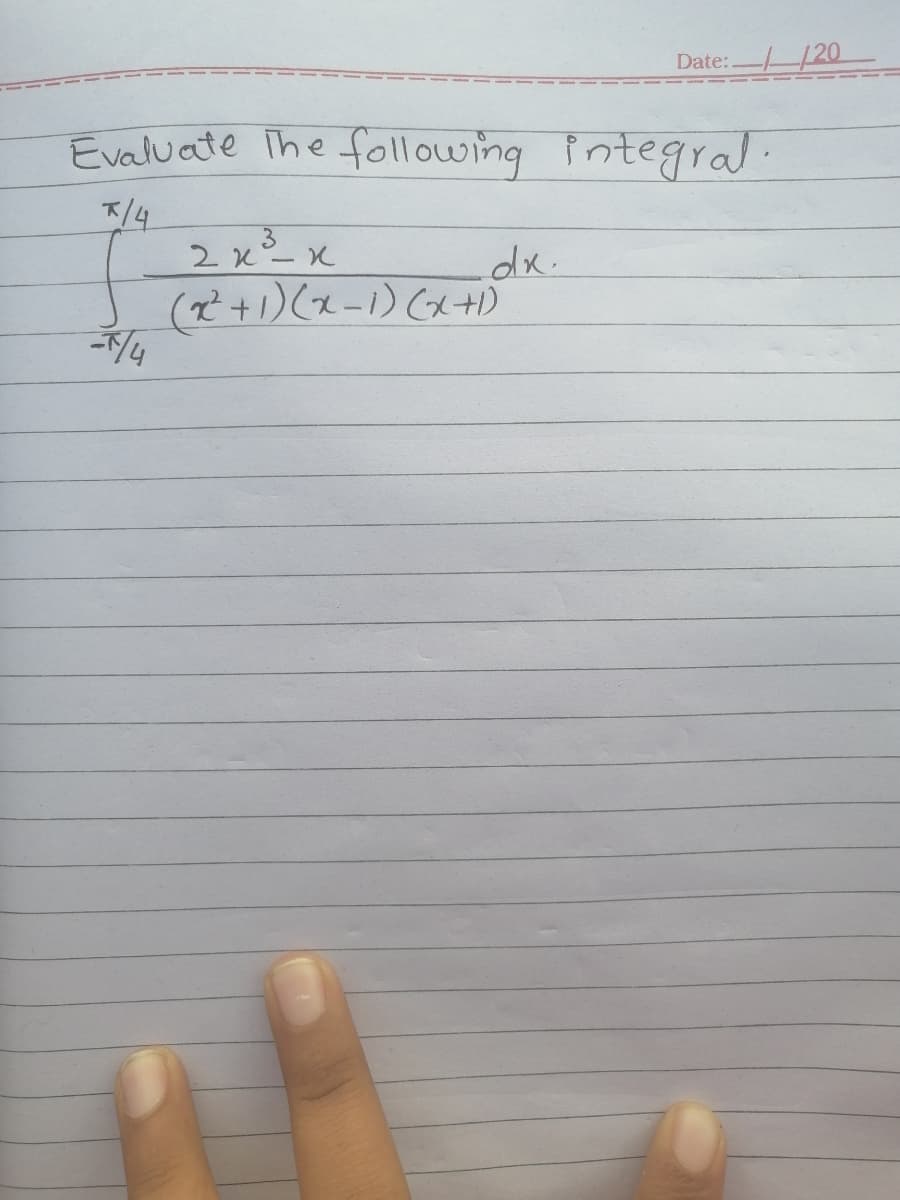 Date: / /20
Evaluate The following integral.
π/4
∫ 2x³-x / (x²+1)(x-1)(x+1) dx.
-π/4